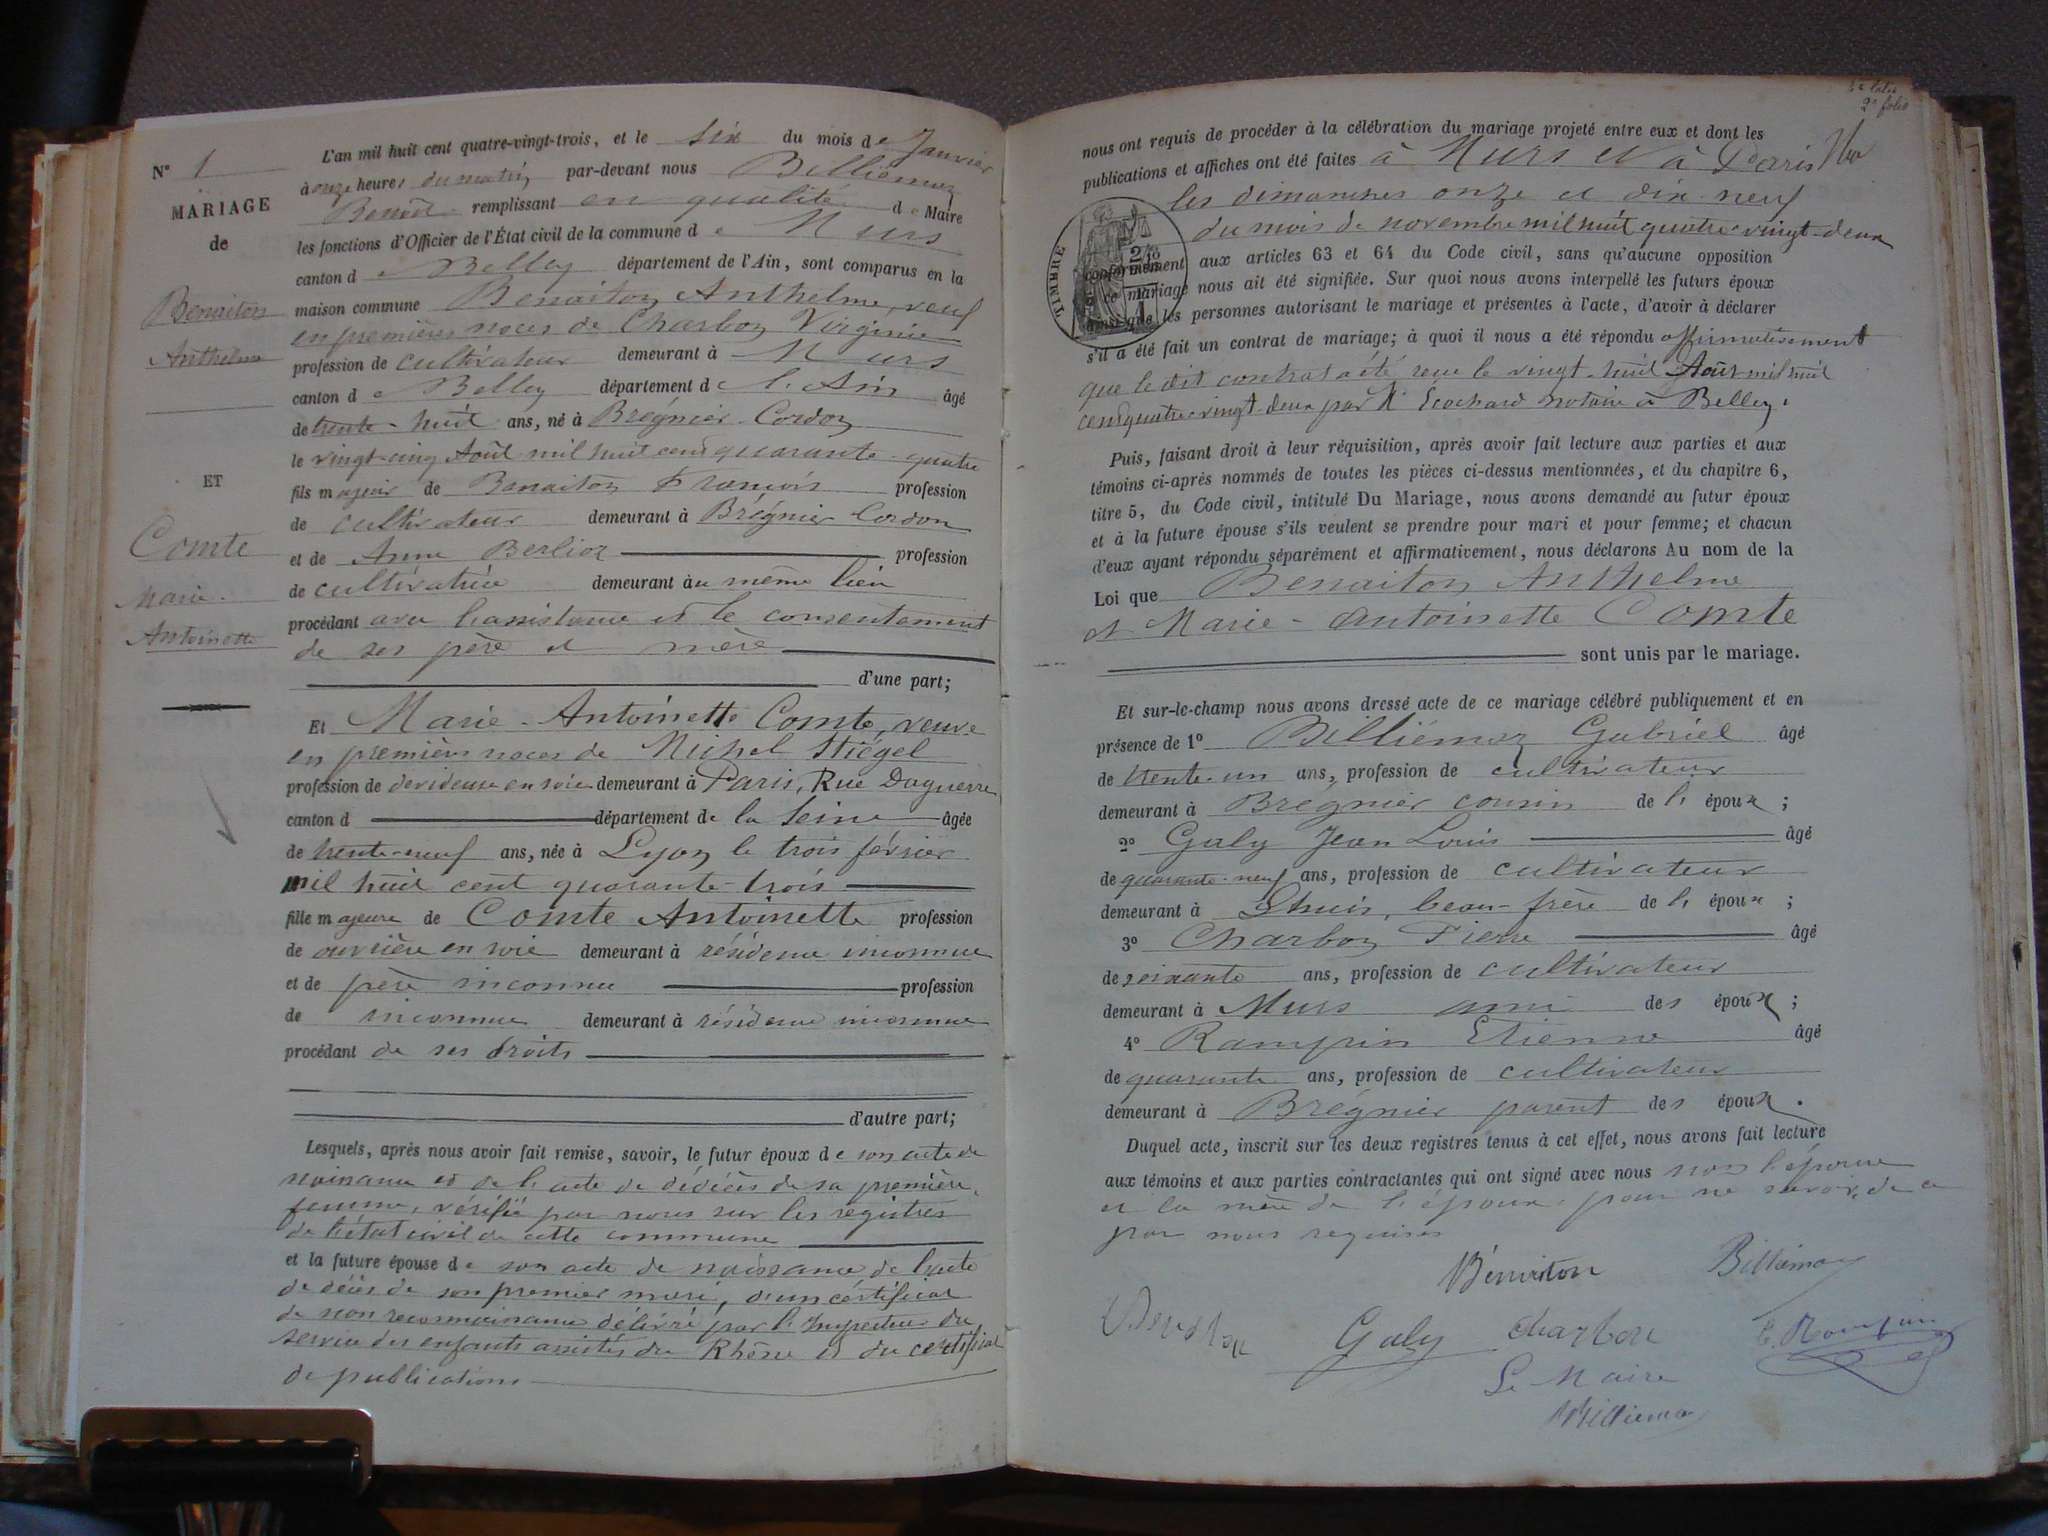 N° 1
MARIAGE
de
Benaiton
Anthelme
ET
Comte
Marie
Antoinette
L'an mil huit cent quatre-vingt-trois, et le six du mois de Janvier
à onze heures du matin par-devant nous Billiemaz
Benoît remplissant en qualité de Maire
les fonctions d'Officier de l'État civil de la commune de Murs
canton de Belley département de l'Ain, sont comparus en la
maison commune Benaiton Anthelme, veuf
en premières noces de Charbon Virginie
profession de cultivateur demeurant à Murs
canton de Belley département de l'Ain âgé
de trente-huit ans, né à Brégnier-Cordon
le vingt-cinq Août mil huit cent quarante-quatre
fils majeur de Benaiton François profession
de cultivateur demeurant à Brégnier Cordon
et de Anne Berlioz profession
de cultivatrice demeurant au même lieu
procédant avec l'assistance et le consentement
de ses père et mère
d'une part;
Et Marie-Antoinette Comte, veuve
en premières noces de Michel Stiégel
profession de dévideuse en soie demeurant à Paris, Rue Daguerre
canton d département de la Seine âgée
de trente-neuf ans, née à Lyon le trois février
mil huit cent quarante-trois
fille majeure de Comte Antoinette profession
de ouvrière en soie demeurant à résidence inconnue
et de père inconnu profession
de inconnue demeurant à résidence inconnue
procédant de ses droits
d'autre part;
Lesquels, après nous avoir fait remise, savoir, le futur époux de son acte de
naissance et de l'acte de décès de sa première
femme, vérifié par nous sur les registres
de l'état civil de cette commune
et la future épouse de son acte de naissance de l'acte
de décès de son premier mari, d'un certificat
de non reconnaissance délivré par l'Inspecteur du
service des enfants assistés du Rhône et du certificat
de publications
2e folio
nous ont requis de procéder à la célébration du mariage projeté entre eux et dont les
publications et affiches ont été faites à Murs et à Paris
les dimanches onze et dix-neuf
du mois de novembre mil huit quatre-vingt-deux
TIMBRE
conformément aux articles 63 et 64 du Code civil, sans qu'aucune opposition
à ce mariage nous ait été signifiée. Sur quoi nous avons interpellé les futurs époux
ainsi que les personnes autorisant le mariage et présentes à l'acte, d'avoir à déclarer
s'il a été fait un contrat de mariage; à quoi il nous a été répondu affirmativement
que le dit contrat a été reçu le vingt-huit Août mil huit
cent quatre-vingt-deux par M. Ecochard notaire à Belley.
Puis, faisant droit à leur réquisition, après avoir fait lecture aux parties et aux
témoins ci-après nommés de toutes les pièces ci-dessus mentionnées, et du chapitre 6,
titre 5, du Code civil, intitulé Du Mariage, nous avons demandé au futur époux
et à la future épouse s'ils veulent se prendre pour mari et pour femme; et chacun
d'eux ayant répondu séparément et affirmativement, nous déclarons Au nom de la
Loi que Benaiton Anthelme
et Marie-Antoinette Comte
sont unis par le mariage.
Et sur-le-champ nous avons dressé acte de ce mariage célébré publiquement et en
présence de 1° Billiémaz Gabriel âgé
de trente-un ans, profession de cultivateur
demeurant à Brégnier cousin de l'époux;
2° Galy Jean Louis âgé
de quarante-neuf ans, profession de cultivateur
demeurant à Lhuis, beau-frère de l'époux;
3° Charbon Pierre âgé
de soixante ans, profession de cultivateur
demeurant à Murs ami des époux;
4° Rampin Etienne âgé
de quarante ans, profession de cultivateur
demeurant à Brégnier parent des époux.
Duquel acte, inscrit sur les deux registres tenus à cet effet, nous avons fait lecture
aux témoins et aux parties contractantes qui ont signé avec nous non l'épouse
et la mère de l'époux pour ne savoir, de ce
par nous requises
Bénaiton Billiemaz
Galy Charbon E. Rampin
Le Maire
Billiemaz